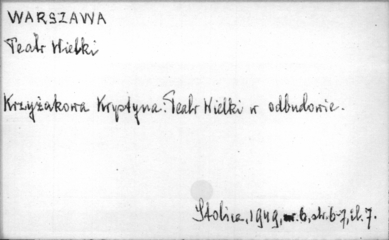 WARSZAWA
Teatr Wielki
Krzyżakowa Krystyna: Teatr Wielki w odbudowie.
Stolica, 1949, nr. 6, str. 6-7, il. 7.